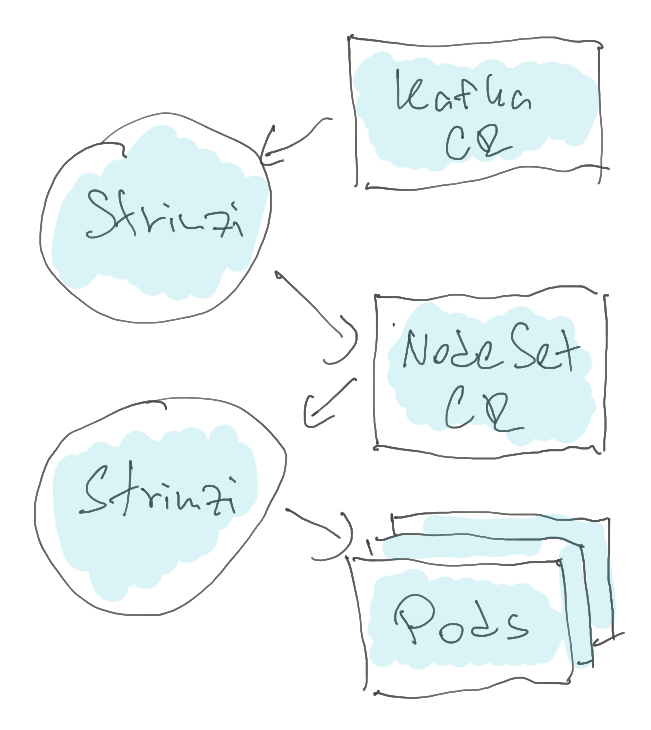 Kafka
CR
Strimzi
NodeSet
CR
Strimzi
Pods